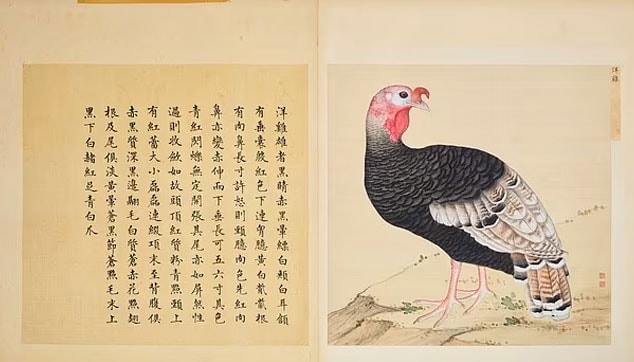 洋雞
洋雞雄者黑睛赤黑暈縹白頰白耳頷
有垂囊殷紅色下連胷臆黃白散散根
有肉鼻長寸許怒則頸臆肉色先紅肉
鼻亦變赤伸而下垂長可五六寸其色
青紅閃爍無定開張其尾亦如屏然性
過則收斂如故頭頂紅質粉青點頸上
有紅蕾大小磊磊連綴項末至背腹俱
赤黑質深黑邊翮毛白質蒼赤花點翅
根及尾俱淡黃暈蒼黑節蒼點毛末上
黑下白赭紅足青白爪